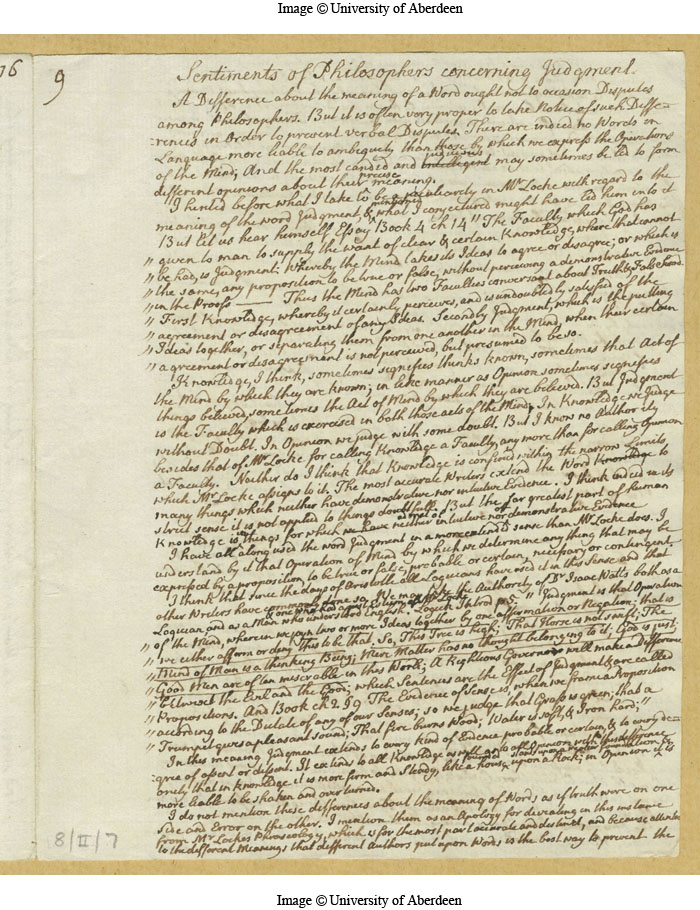 Image © University of Aberdeen
76
9
Sentiments of Philosophers concerning Judgment.
A Difference about the meaning of a Word ought not to occasion Disputes
among Philosophers. But it is often very proper to take Notice of such Diffe-
rences in Order to prevent verbal Disputes. There are indeed no Words in
Language more liable to ambiguity than those by which we express the Operations
of the Mind; And the most candid and intellegent judicious may sometimes be led to form
different opinions about their precise meaning.
I hinted before what I take to be peculiarity in Mr Locke with regard to the
meaning of the word Judgment, & mentioned what I conjectured might have led him into it
But let us hear himself Essay Book 4 ch 14 "The Faculty which God has
" given to man to supply the want of clear & certain Knowledge, where that cannot
" be had, is Judgment: Whereby the Mind takes its Ideas to agree or disagree; or which is
" the same, any proposition to be true or false, without perceiving a demonstrative Evidence
" in the Proofs — Thus the Mind has two Faculties conversant about Truth & Falsehood.
" First Knowledge, whereby it certainly perceives, and is undoubtedly satisfied of the
" agreement or disagreement of any Ideas. Secondly Judgment, which is the putting
" Ideas together, or separating them from one another in the Mind, when their certain
" agreement or disagreement is not perceived, but presumed to be so.
Knowledge, I think, sometimes signifies things known, sometimes that Act of
the Mind by which they are known; in like manner as Opinion sometimes signifies
things believed, sometimes the Act of Mind by which they are believed. But Judgment
is the Faculty which is exercised in both those acts of the Mind. In Knowledge we Judge
without Doubt. In Opinion we judge with some doubt. But I know no Authority
besides that of Mr Locke for calling Knowledge a Faculty, any more than for calling Opinion
a Faculty. Neither do I think that Knowledge is confined within the narrow Limits
which Mr Locke assigns to it. The most accurate Writers extend the Word Knowledge to
many things which neither have demonstrative nor intuitive Evidence. I think indeed in its
strict sense it is not applied to things doubtfull. But the far greatest part of human
Knowledge is of things for which we have neither intuitive nor demonstrative Evidence
I have all along used the word Judgment in a more extended sense than Mr Locke does. I
understand by it that Operation of Mind by which we determine any thing that may be
expressed by a proposition, to be true or false, probable or certain, necessary or contingent.
I think that since the days of Aristotle all Logicians have used it in this sense and that
other Writers have commonly done so. We may the Authority of Dr Isaac Watts both as a
Logician and as a Man who understood English, & one who had a just Esteem of Mr Locke Logick " Judgment is that Operation
" of the Mind, wherein we join two or more Ideas together by one Affirmation or Negation; that is
" we either affirm or deny this to be that. So, This Tree is high; That Horse is not swift; The
" Mind of Man is a thinking Being; Mere Matter has no thought belonging to it; God is just;
" Good Men are often miserable in this World; A Righteous Governor will make a difference
" betwixt the Evil and the Good; which Sentences are the Effect of Judgment & are called
" Propositions. And Book ch 2 § 9 The Evidence of Sense is, when we frame a Proposition
" according to the Dictate of any of our Senses; so we judge that Grass is green; that a
" Trumpet gives a pleasant sound; That fire burns Wood; Water is soft, & Iron hard;"
In this meaning Judgment extends to every kind of Evidence probable or certain, & to every de-
gree of assent or dissent. It extends to all Knowledge as well as to all Opinion with this difference
only that in Knowledge it is more firm and steady, like a house founded upon a Rock; in Opinion it stands upon a weaker foundation, & is
more liable to be shaken and overturned.
I do not mention these differences about the meaning of Words as if truth were on one
side and Error on the other. I mention them as an Apology for deviating in this instance
from Mr Lockes Phraseology, which is for the most part accurate and distinct, and because attention
to the different Meanings that different authors put upon Words is the best way to prevent the
8/II/7
Image © University of Aberdeen